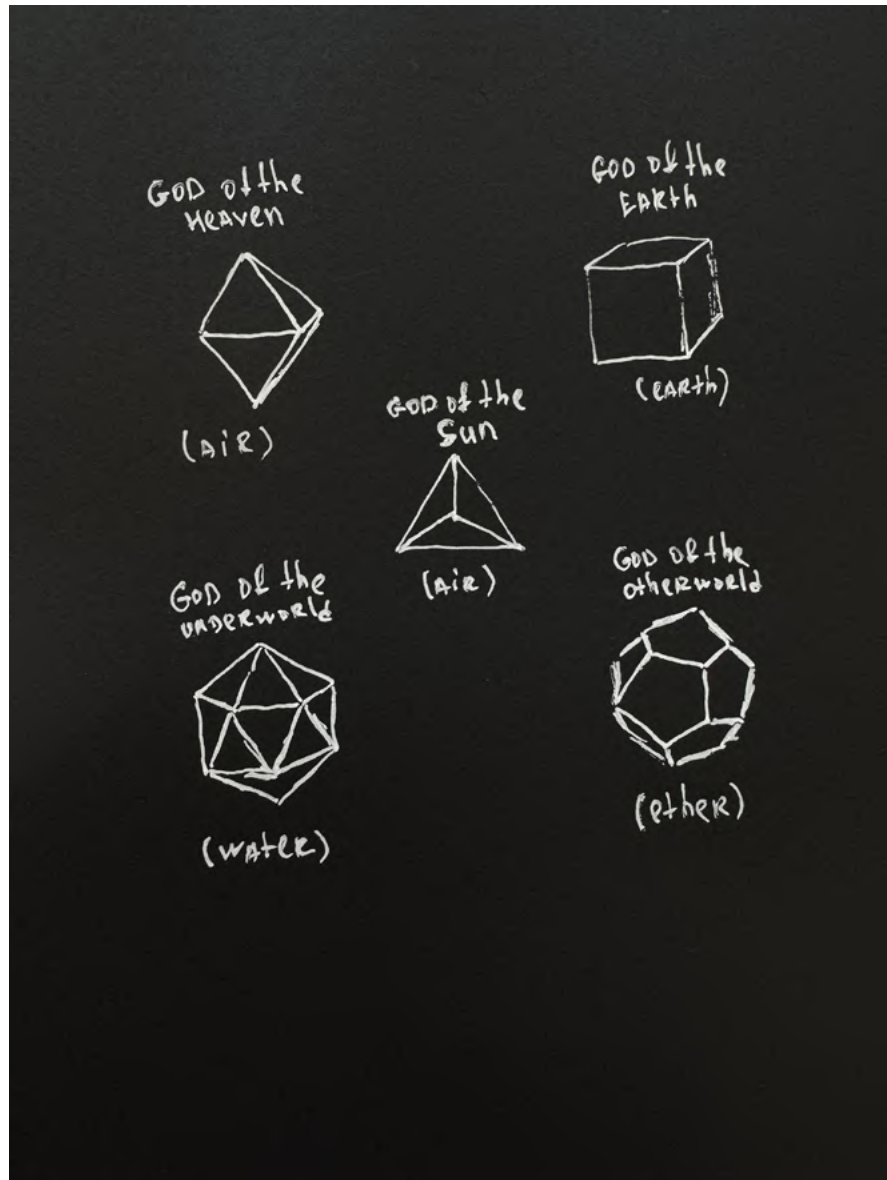 GOD of the
HEAVEN
(AIR)
GOD of the
EARth
(EARth)
GOD of the
Sun
(AIR)
GOD of the
UNDERWORLd
(WAteR)
GOD of the
OtheRWORLd
(etheR)